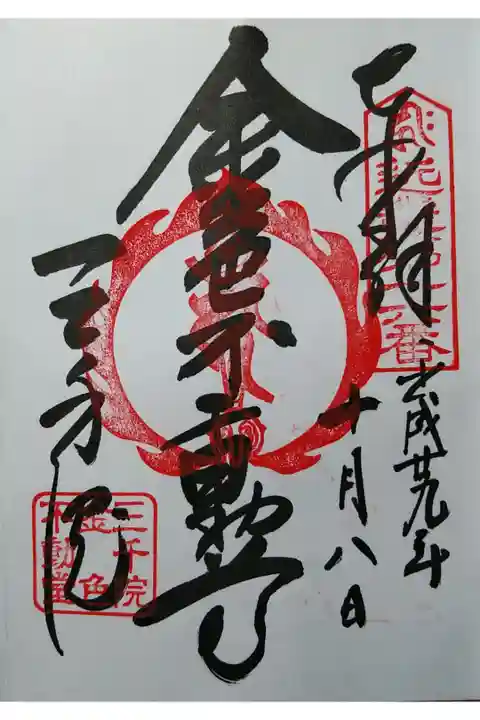 奉拝
平成廿九年
十月八日
金色不動尊
三千院
三千院
金色
不動堂